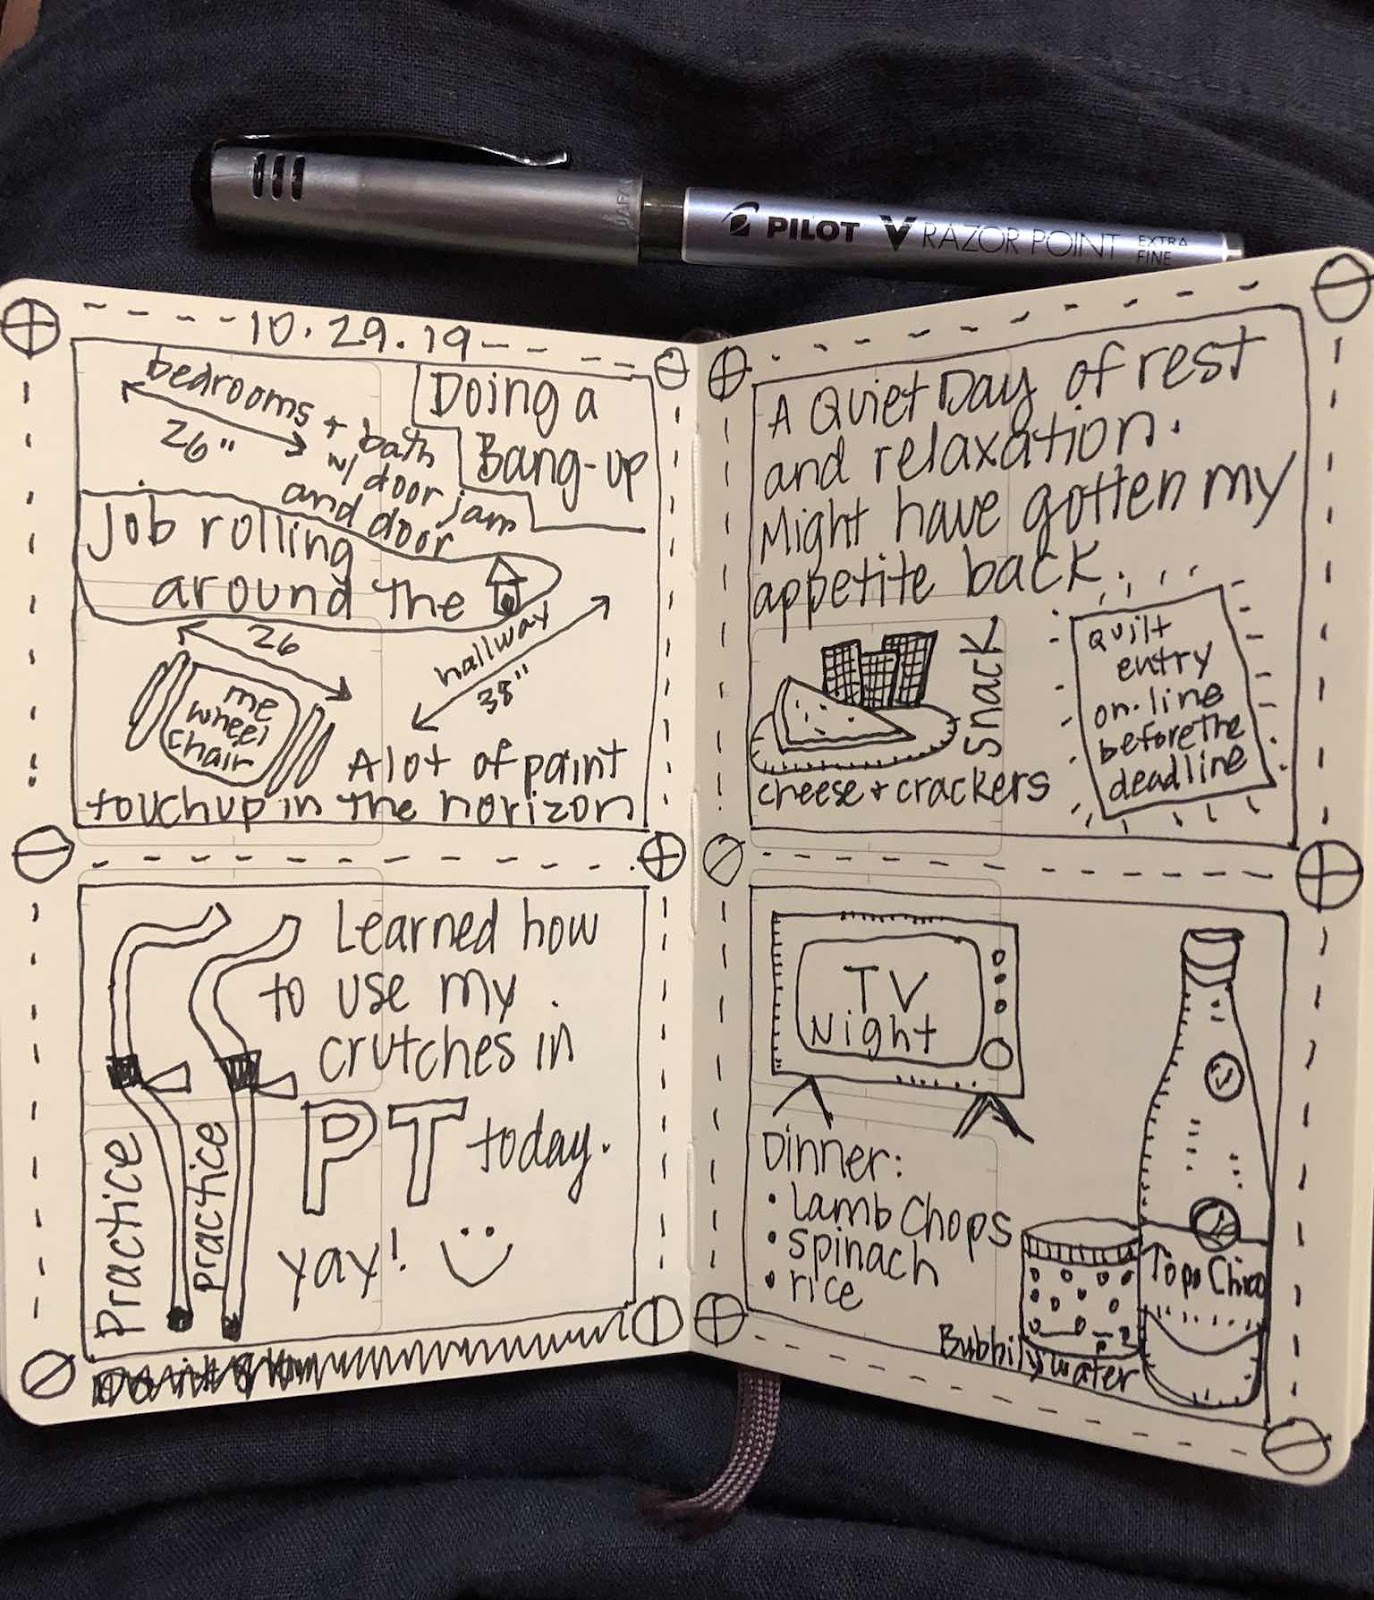 JAPAN
PILOT V RAZOR POINT EXTRA
FINE
10.29.19
bedrooms + bath
w/ door jam
and door
26"
Doing a
Bang-up
job rolling
around the
26
me
wheel
chair
hallway
38"
A lot of paint
touchup in the horizon
Learned how
to use my
crutches in
PT today.
yay!
Practice
practice
A Quiet Day of rest
and relaxation.
Might have gotten my
appetite back.
Snack
cheese + crackers
quilt
entry
on-line
before the
deadline
TV
Night
Dinner:
• lamb chops
• spinach
• rice
Topo Chico
Bubbily water